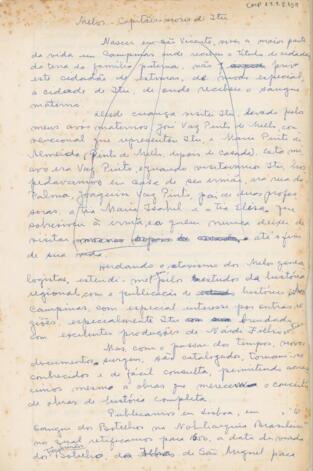 CMP 2.1.8.219
Melos - Capitães-mores de Itu
Nasceu em São Vicente, viveu a maior parte
da vida em Campinas onde recebeu o título de cidadão,
da terra da família paterna, não privo
este cidadão de estimar, de modo especial,
a cidade de Itu, de onde recebeu o sangue
materno.
Desde criança visitei Itu, levado pelo
meus avós maternos José Vaz Pinto de Mello,
que representou Itu, e Maria Pinto de
Almeida (Pinto de Mello, depois de casada). Este meu
avô era Vaz Pinto, quando visitávamos Itu, hos-
pedavamos em casa de seu irmão, na rua da
Palma, Joaquim Vaz Pinto, pai de duas profes-
soras, a tia Maria Isabel e a tia Elisa, que
sobreviveu à irmã, a quem nunca deixei de
visitar até o fim
de sua vida.
Herdando o atavismo dos Melos genea-
logistas, estendi-me pelos estudos da história
regional, com a publicação de histórias
Campinas, com especial interesse por outras re-
giões, especialmente Itu
com excelentes produções de Nardy Filho
Mas, com o passar dos tempos, novos
documentos surgem, são catalogados, tornam-se
conhecidos e de fácil consulta, permitindo acrés-
cimos mesmo a obras que merecem o conceito
de obras de história completa.
Publicamos em Lisboa, em "O
Sangue dos Botelhos na Nobiliarquia Brasileira"
no qual retificamos para 1600, a data da vinda
dos Botelho, da Ilha de São Miguel para